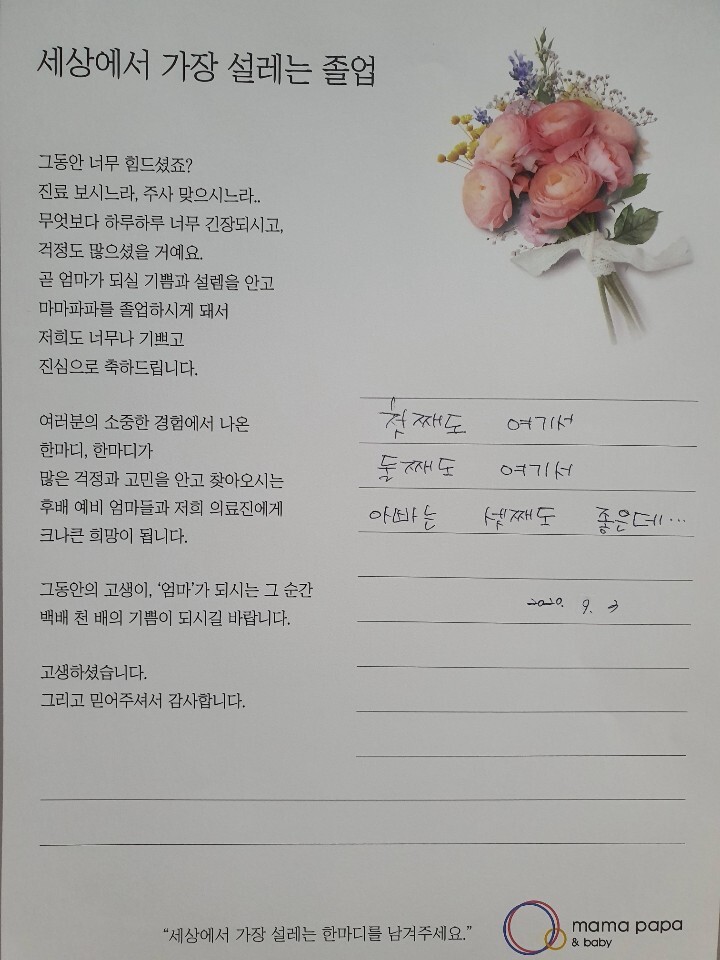 세상에서 가장 설레는 졸업
그동안 너무 힘드셨죠?
진료 보시느라, 주사 맞으시느라..
무엇보다 하루하루 너무 긴장되시고,
걱정도 많으셨을 거예요.
곧 엄마가 되실 기쁨과 설렘을 안고
마마파파를 졸업하시게 돼서
저희도 너무나 기쁘고
진심으로 축하드립니다.
여러분의 소중한 경험에서 나온
한마디, 한마디가
많은 걱정과 고민을 안고 찾아오시는
후배 예비 엄마들과 저희 의료진에게
크나큰 희망이 됩니다.
그동안의 고생이, '엄마'가 되시는 그 순간
백배 천 배의 기쁨이 되시길 바랍니다.
고생하셨습니다.
그리고 믿어주셔서 감사합니다.
첫째도 여기서
둘째도 여기서
아빠는 셋째도 좋은데...
2020. 9. 3
"세상에서 가장 설레는 한마디를 남겨주세요."
mama papa
& baby